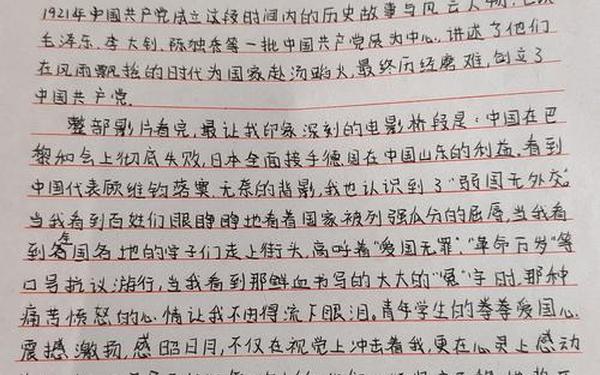 1921年中国共产党成立这段时间内的历史故事与风云人物,
毛泽东、李大钊、陈独秀等一批中国共产党员为中心,讲述了他们
在风雨飘摇的时代为国家赴汤蹈火,最终历经磨难,创立了
中国共产党.
整部影片看完,最让我印象深刻的电影桥段是:中国在巴
黎和会上彻底失败,日本全面接手德国在中国山东的利益。看到
中国代表顾维钧落寞、无奈的背影,我也认识到了"弱国无外交"
当我看到百姓们眼睁睁地看着国家被列强瓜分的屈辱,当我看
到全国各地的学子们走上街头,高呼着"爱国无罪"、"革命万岁"等
口号抗议游行,当我看到那鲜血书写的大大的"冤"字时,那种
痛苦愤怒的心情让我不由得流下眼泪。青年学生的拳拳爱国心
震撼激扬,感昭日月,不仅在视觉上冲击着我,更在心灵上感动